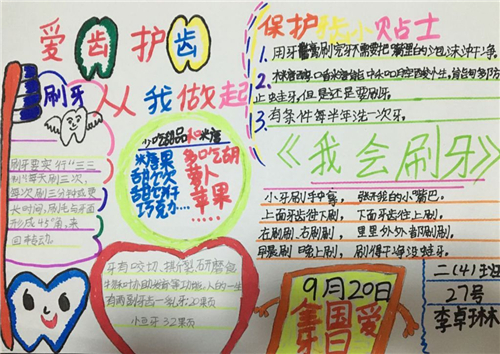 爱齿护齿
从我做起
刷牙
刷牙要实行"三三
制"每天刷三次,
每次刷三分钟或更
长时间,刷毛与牙面
形成45°角,来
回转动。
糖果
巧克力....
胡
苹果
牙有咬切、撕裂、研磨食
物和协助发音等功能,人的一生
有两副牙齿—乳牙20颗
保护 小贴士
1. 用牙膏刷完牙不需要把嘴里的泡沫冲净。
2.
止蛀牙,但是还是要刷牙。
3. 有条件每半年洗一次牙。
《我会刷牙》
小牙刷手中拿, 张开我的小嘴巴。
上面牙齿往下刷, 下面牙齿往上刷,
左刷刷,右刷刷, 里里外外都刷刷,
早晨刷 晚上刷, 刷得干净没蛀牙。
9月20日
全国爱
牙日
二(4)班
27号
李卓琳